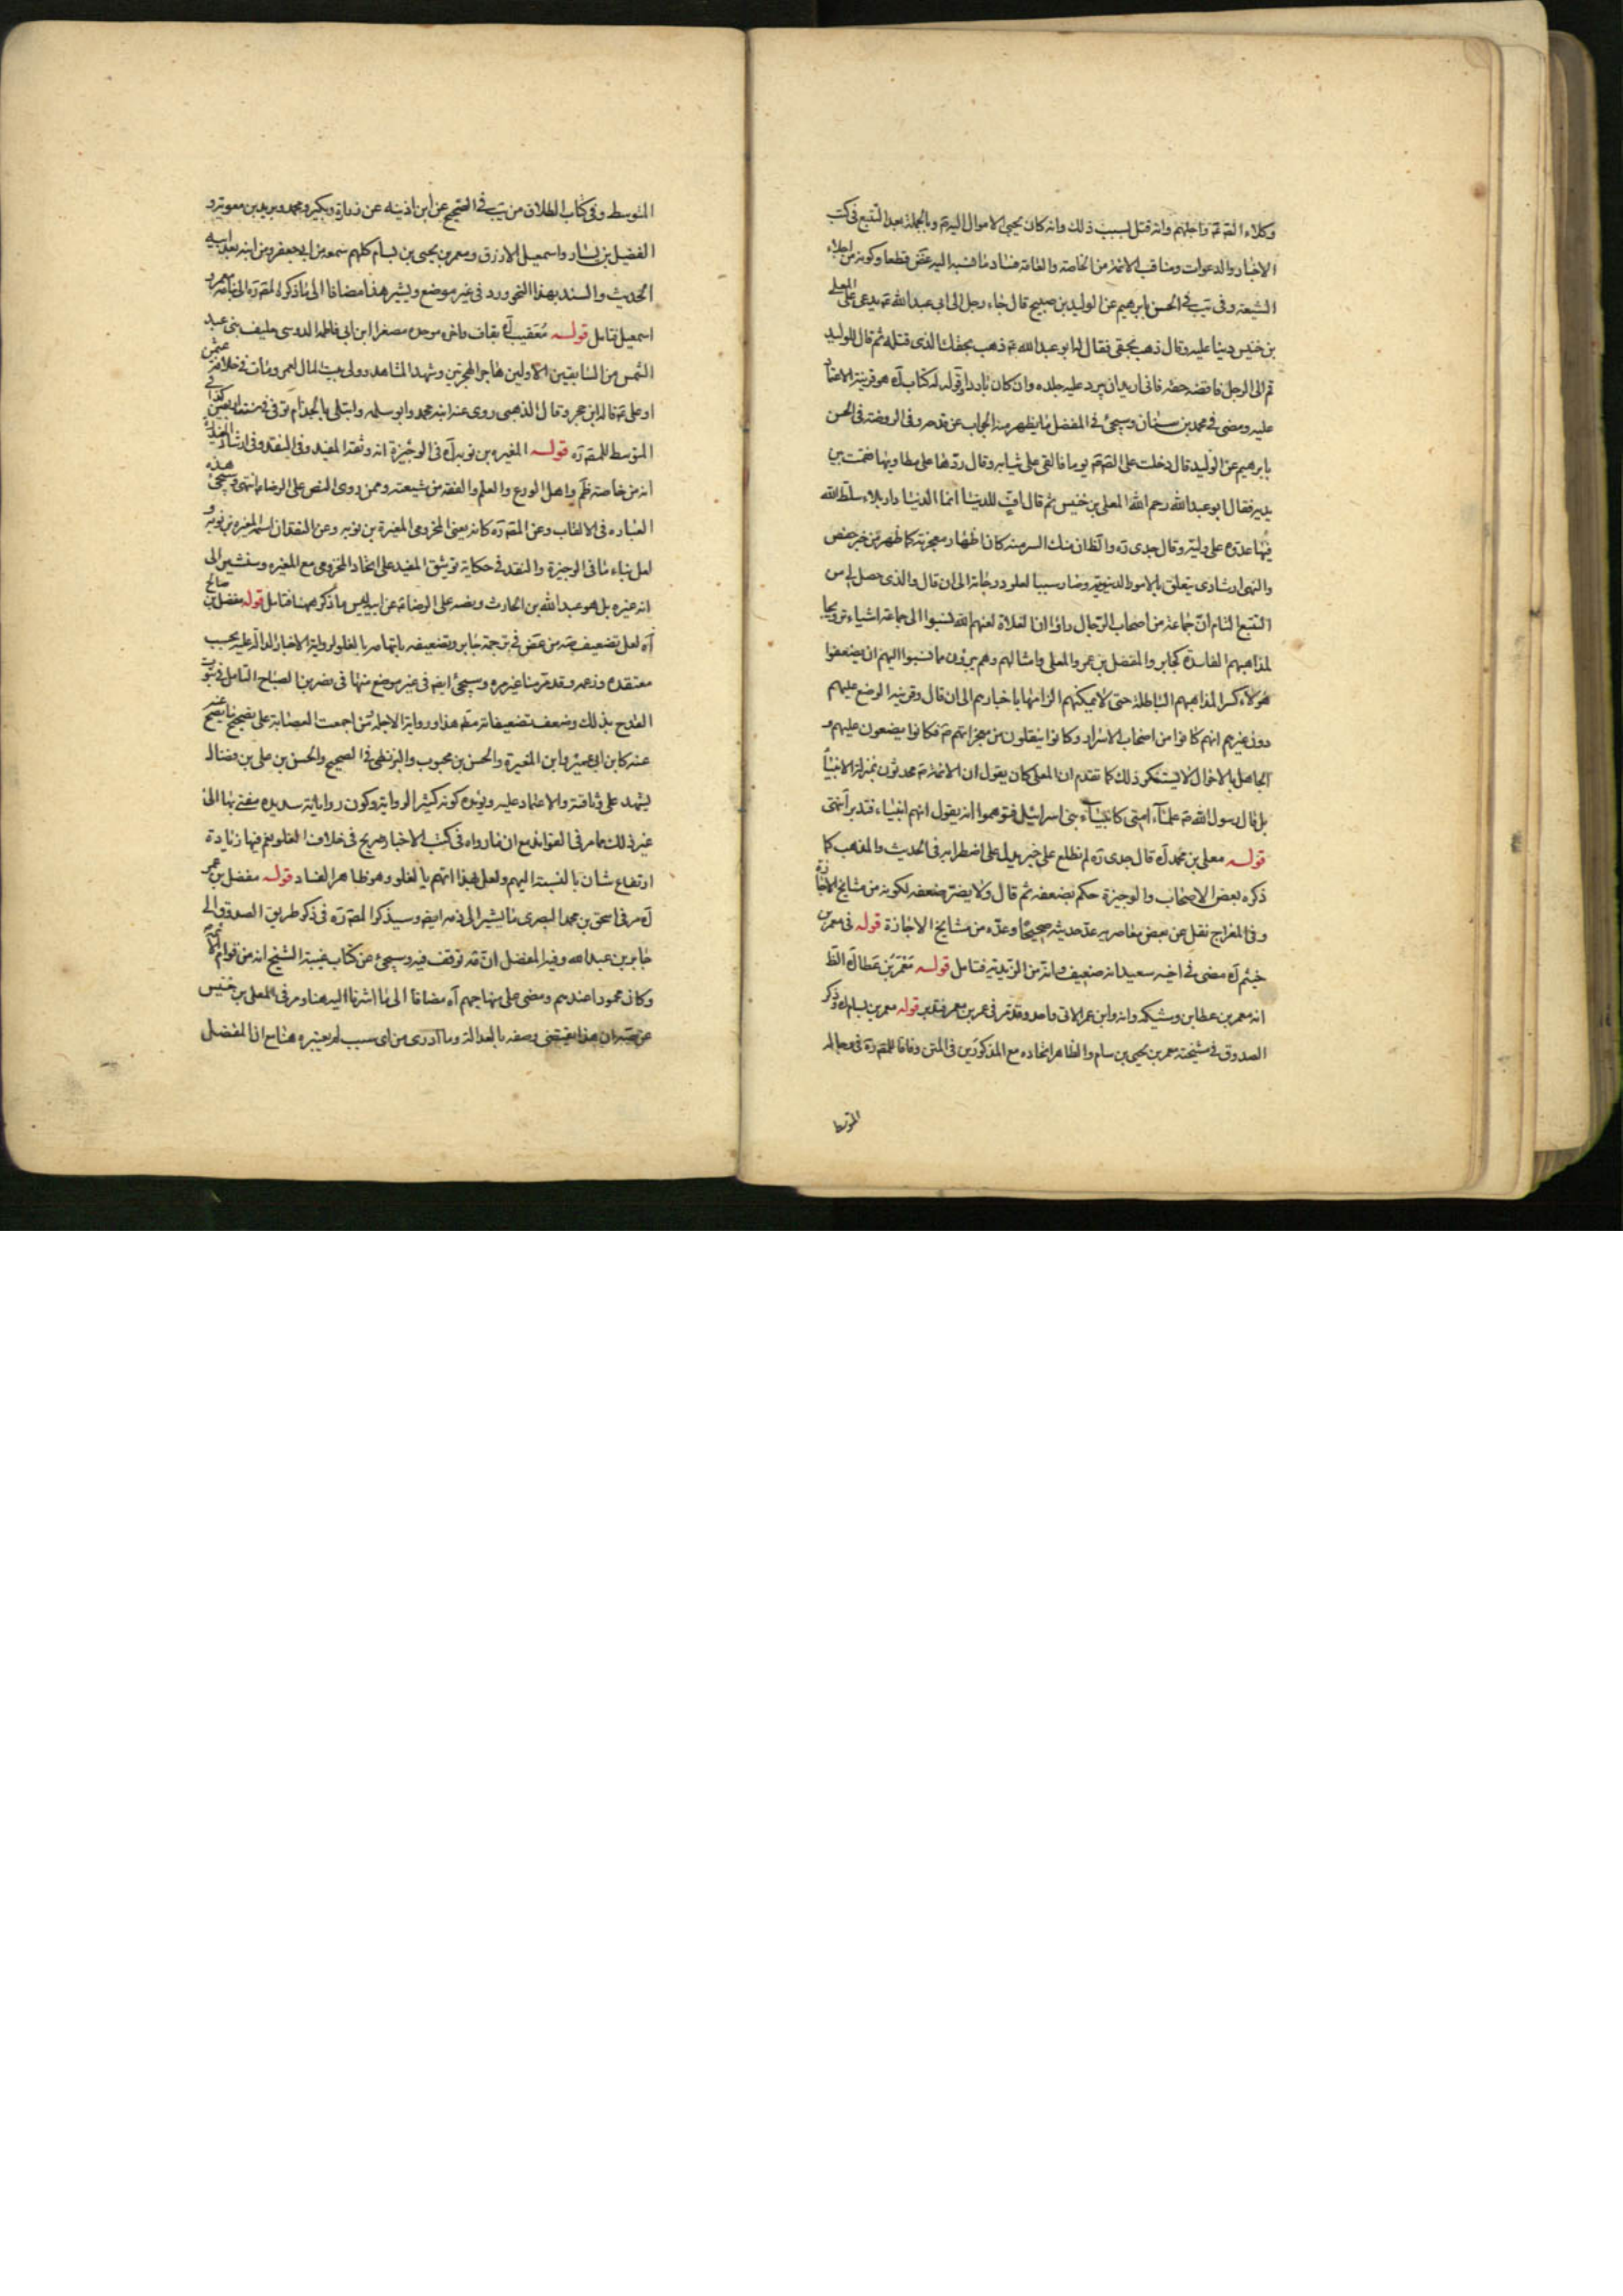 وكلاء الصّ ع واجلهم وانه قتل بسبب ذلك وانه كان يحيى الاموال اليه ع وبالجملة بعد التتبع فى كتب
الاخبار والدعوات ومناقب الائمة من الخاصة والعامة فساد ما نسبه اليه غض قطعا وكونه من اجلاء
الشيعة وفى يب فى الحسن بابرهيم عن الوليد بن صبيح قال جاء رجل الى ابى عبد الله ع يدعى على المعلى
بن خنيس دينا عليه وقال ذهب بحقى فقال له ابو عبد الله ع ذهب بحقك الذى قتله ثم قال للوليد
قم الى الرجل فاقضه حقه فانى اريد ان يبرد عليه جلده وان كان باردا وقوله له كتاب آه هو قرينة الاعتماد
عليه ومضى فى محمد بن سنان وسيجئ فى المفضل ما يظهر منه الجواب عن قدحه وفى الروضة فى الحسن
بابرهيم عن الوليد قال دخلت على الصّ ع يوما فالقى على ثيابه وقال ردّها على مطاويها فقمت بين
يديه فقال ابو عبد الله رحم الله المعلى بن خنيس ثم قال افّ للدنيا انما الدنيا دار بلاء سلّط الله
فيها عدوّه على وليّه وقال جدى ره والظ ان منك السر منه كان اظهار معجزته كما ظهر من خبر حفص
والنهى ارشادى يتعلق بالامور الدنيوية وصار سببا لعلو درجاته الى ان قال والذى حصل لى من
التتبع التام انّ جماعة من اصحاب الرّجال راؤا ان الغلاة لعنهم الله نسبوا الى جماعة اشياء ترويجا
لمذاهبهم الفاسدة كجابر والمفضل بن عمر والمعلى وامثالهم وهم بريؤن مما نسبوا اليهم ان يضعفوا
هؤلاء كسرا لمذاهبهم الباطلة حتى لا يمكنهم الزامها باخبارهم الى ان قال وقرينة الوضع عليهم
دون غيرهم انهم كانوا من اصحاب الاسرار وكانوا ينقلون من معجزاتهم ع فكانوا يضعون عليهم و
الجاهل بالاحوال لا يستنكر ذلك كما تقدم ان المعلى كان يقول ان الائمة ع محدثون بمنزلة الانبياء
بل قال رسول الله ص علماء امتى كانبياء بنى اسرائيل فتوهموا انه يقول انهم انبياء فتدبر انتهى
قوله معلى بن محمد آه قال جدى ره لم نطلع على خبر يدل على اضطرابه فى الحديث والمذهب كما
ذكره بعض الاصحاب والوجيزة حكم بضعفه ثم قال ولا يضرّ ضعفه لكونه من مشايخ الاجازة
وفى المعراج نقل عن بعض معاصريه عدّ حديثه صحيحًا وعدّه من مشايخ الاجازة قوله فى معمر بن
خيثم آه مضى فى اخيه سعيد انه ضعيف وانه من الزيدية فتامل قوله مَعْمَر بن عطا آه الظ
انه معمر بن عطا بن وشيكه وانه وابن عمر الاتى واحد وقد مر فى عمر بن معمر فتدبر قوله معمر بن بسام آه وذكر
الصدوق فى مشيخته معمر بن يحيى بن سام والظاهر اتحاده مع المذكورين فى المتن وفاقا للمص ره فى رجاله
المتوسط
المتوسط وفى كتاب الطلاق من يب فى الصحيح عن ابن اذينه عن زرارة وبكير ومحمد وبريد بن معوية و
الفضيل بن يسار واسمعيل الازرق ومعمر بن يحيى بن بسام كلهم سمعه من ابى جعفر ومن ابنه بعد ابيه
الحديث والسند بهذا النحو ورد فى غير موضع ويشير هذا مضافا الى ما ذكره المص ره الى معمر بن
اسمعيل فتامل قوله مُعَقيب آه بقاف واخره موحدة مصغرا ابن ابى فاطمه الدوسى حليف بنى عبد
الشمس من السابقين الاولين هاجر الهجرتين وشهد المشاهد وولى بيت المال لعمر ومات فى خلافة عثمن
او على ع قاله ابن حجر وقال الذهبى روى عنه ابنه محمد وابو سلمه وابتلى بالجذام توفى فى سنة اربعين كذا فى
المتوسط للمص ره قوله المغيره بن توبه آه فى الوجيزة انه وثقه المفيد وفى النقد وفى ارشاد المفيد
انه من خاصة ظم واهل الورع والعلم والفقه من شيعته وممن روى النص على الرضا ع انتهى وسيجئ هذه
العبارة فى الالقاب وعن المص ره كانه يعنى المخزومى المغيرة بن توبه وعن النقد ان اسمه المغيره بن توبه و
لعل بناء ما فى الوجيزة والنقد فى حكاية توثيق المفيد على اتحاد المخزومى مع المغيره وسنشير الى
انه غيره بل هو عبد الله بن الحارث ونصه على الرضا ع عن ابيه ليس ما ذكر ههنا فتامل قوله مفضل بن صالح
آه لعل تضعيف صه من غض فى ترجمة جابر وتضعيفه باتهامه بالغلو لرواية الاخبار الدالة عليه بحسب
معتقده وزعمه وقد مر منا غير مره وسيجئ ايضا فى غير موضع منها فى نصر بن الصباح التامل فى ثبوت
القدح بذلك وضعف تضعيفاته مط هذا ورواية الاجلة من اجمعت العصابة على تصحيح ما يصح
عنه كابن ابى عمير وابن المغيرة والحسن بن محبوب والبزنطى فى الصحيح والحسن بن على بن فضال
يشهد على وثاقته والاعتماد عليه ويؤيده كونه كثير الرواية وكون رواياته سديده مفتى بها الى
غير ذلك مما مر فى الفوائد مع ان ما رواه فى كتب الاخبار صريح فى خلاف الغلو نعم فيها زيادة
ارتفاع شان بالنسبة اليهم ولعل لهذا اتهم بالغلو وهو ظاهر الفساد قوله مفضل بن عمر
آه مر فى اسحق بن محمد البصرى ما يشير الى ذمه ايضا وسيذكر المص ره فى ذكر طريق الصدوق الى
جابر بن عبد الله وفيه المفضل انّ صه توقف فيه وسيجئ عن كتاب غيبة الشيخ انه من قوام الائمة
وكان محمودا عندهم ومضى على منهاجهم آه مضافا الى ما اشرنا اليه هنا ومر فى المعلى بن خنيس
عن صه ان هذا يقتضى وصفه بالعدالة وما ادرى من اى سبب لم يعتبره هنا مع ان المفضل